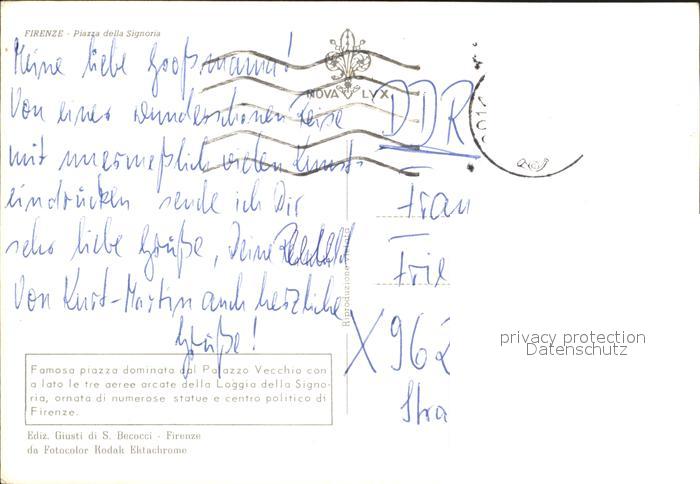 FIRENZE - Piazza della Signoria
Meine liebe Großmama!
Von einer wunderschönen Reise
mit unermeßlich vielen Kunst-
eindrücken sende ich Dir
sehr liebe Grüße, Deine
Von Kurt-Martin auch herzliche
Grüße!
NOVA LVX
DDR
Frau
Frie
X962
Stra
Riproduzione vietata
privacy protection
Datenschutz
Famosa piazza dominata dal Palazzo Vecchio con
a lato le tre aeree arcate della Loggia della Signo-
ria, ornata di numerose statue e centro politico di
Firenze.
Ediz. Giusti di S. Becocci - Firenze
da Fotocolor Kodak Ektachrome